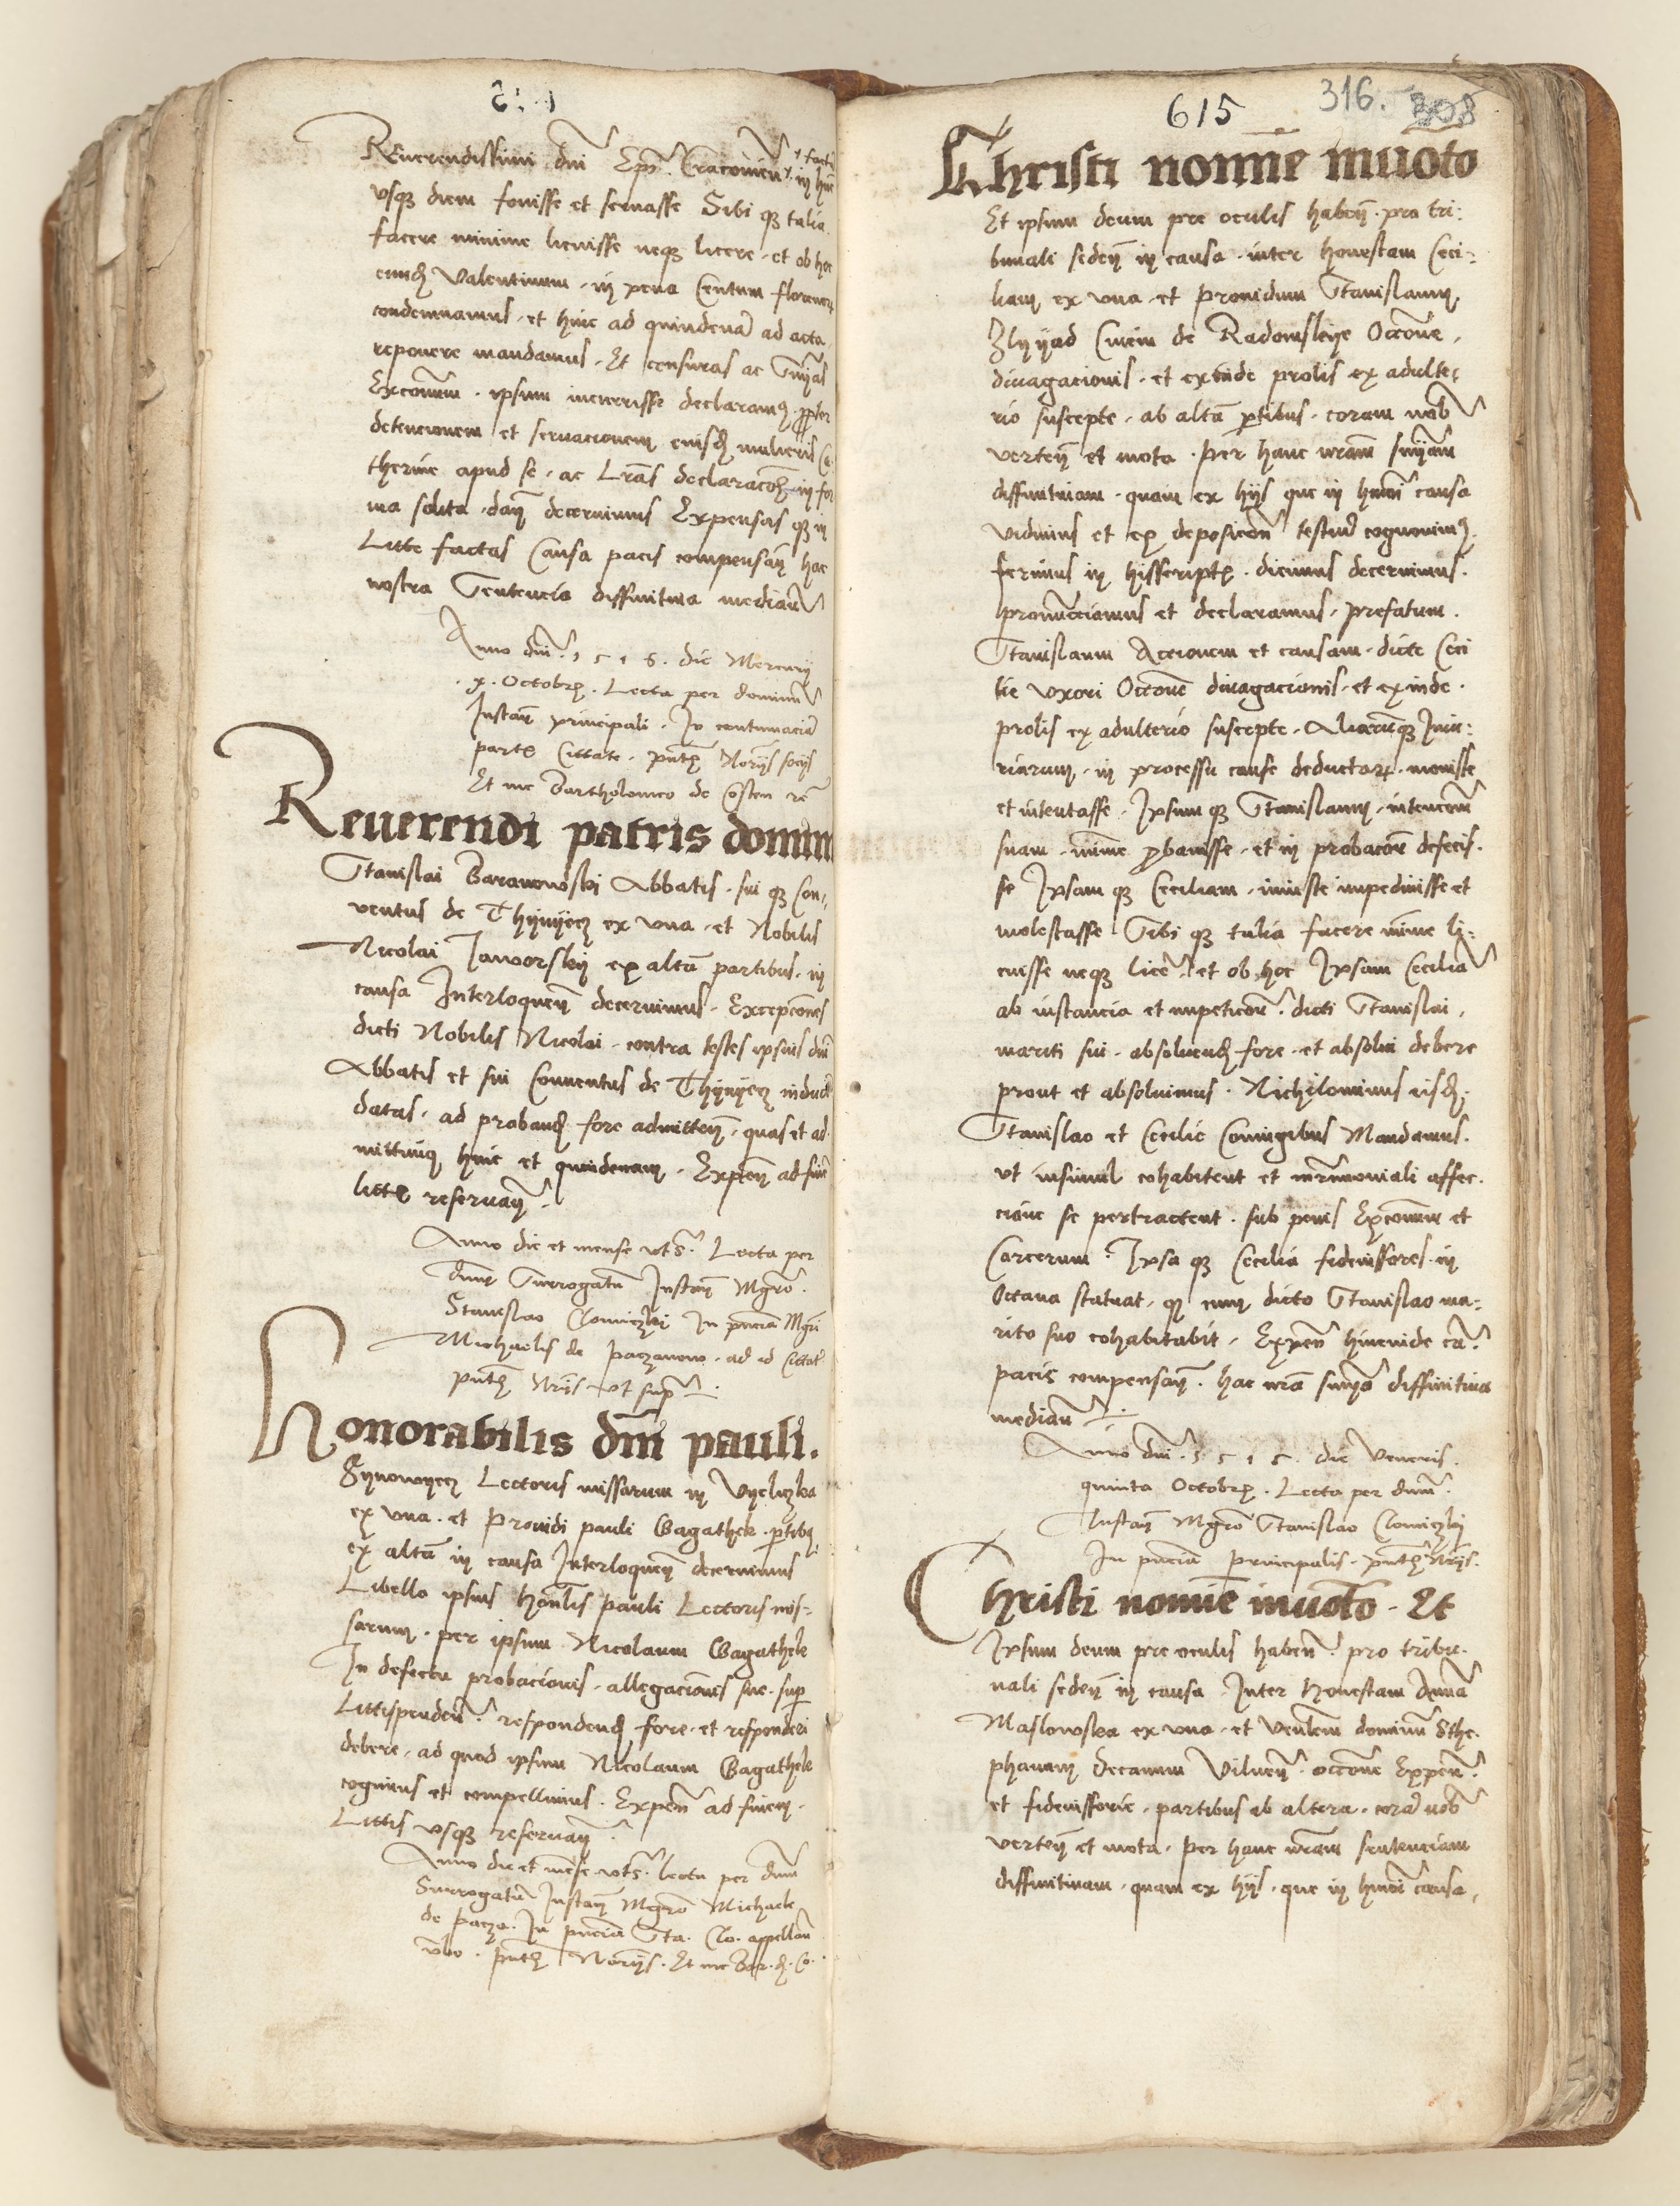 Reuerendissimi dni Epi Cracouien in hūc
vsqꝫ diem fouisse et seruasse Sibi qꝫ talia
facere minime licuisse neqꝫ licere · et ob hoc
eundꝫ Valentinum · in pena Centum florenorꝫ
condemnamus · et hinc ad quindenā ad acta
reponere mandamus · Et censuras ac Snīas
Excoīcum · ipsum incurrisse declaramꝰ · propter
detencionem et seruacionem eiusdꝫ mulieris Ca
therine apud se · ac Lrās declaracoꝫ in for
ma solita · danꝫ decernimus Expensas qꝫ in
Litte factas Causa pacis compensanꝫ hac
nostra Sentencia diffinitiua median
Anno dni · 1 5 1 5 · die Mercurij
· x · Octobrꝫ · Lecta per dominū
Instanꝫ principali · In contumaciā
partꝫ Cittate · pntꝫ Norijs socijs
Et me Bartholomeo de Costen
Reuerendi patris domini
Stanislai Baranowski Abbatis · sui qꝫ Con
uentus de Thijnijecz ex vna · et Nobilis
Nicolai Jaworskij ex altā partibus · in
causa Interloquenꝫ decernimus · Excepcōnes
dicti Nobilis Nicolai · contra testes ipsius dni
Abbatis et sui Conuentus de Thijnijecz induct
datas · ad probandꝫ fore admittenꝫ · quas et ad
mittimꝰ hinc et quindenam · Expenꝫ ad finē
littis reseruanꝫ ·
Anno die et mense vts · Lecta per
dnm Surrogatū Instanꝫ Mgrō
Stanislao Clowiczki In pnciā Mgri
Michaelis de paczanow · ad id Cittat
pntꝫ Nrijs vt supra
Honorabilis dni pauli ·
Zijnowijecz Lectoris missarum in Vijeliczka
ex vna · et Prouidi pauli Gagathek · ptibꝰ
ex altā in causa Interloquenꝫ decernimus
Libello ipsius honlis pauli Lectoris mis=
sarum · per ipsum Nicolaum Gagathek
In defectu probacionis · allegaciōnis sue · sup
Littispenden · respondendꝫ fore · et responderi
debere · ad quod ipsum Nicolaum Gagathek
cogimus et compellimus · Expen ad finem ·
Littis vsqꝫ reseruanꝫ ·
Anno die et mēse vts · lecta per dnm
Surrogatū Instanꝫ Mgrō Michaele
de pacza · In pnciā Sta · Clo · appellan
vbo · pntꝫ Norijs · Et me Bar · d · Co ·
615 316. 308
Christi nomīe inuoto
Et ipsum deum pre oculis habenꝫ · pro tri:
bunali sedenꝫ in causa · inter honestam Ceci=
liam ex vna · et prouidum Stanislaum
Zlijijad Ciuem de Radomskije Occone ·
diuagacionis · et exinde prolis ex adulte
rio suscepte · ab altā ptibus · coram nob
vertenꝫ et mota · per hanc nrām snijam
diffinitiuam · quam ex hijs que in hmoi causa
vidimus et ex deposicōn testiū cognouimꝰ ·
ferimus in hisscriptꝫ · dicimus decernimus ·
pronuncciamus et declaramus · prefatum ·
Stanislaum Accionem et causam · dicte Ceci
lie vxori Occone diuagacionis · et exinde ·
prolis ex adulterio suscepte · Aliarūqꝫ Iniu=
riarum · in processu cause deductarꝫ · mouisse
et intentasse · Ipsum qꝫ Stanislaum · intencōm
suam · mīnīe pbauisse · et in probacōne defecis·
se Ipsam qꝫ Ceciliam · iniuste impediuisse et
molestasse Sibi qꝫ talia facere mīme li=
cuisse neqꝫ lice · et ob hoc Ipsam Ceciliā
ab instancia et impeticōn · dicti Stanislai ·
mariti sui · absoluendꝫ fore · et absolui debere
prout et absoluimus · Nichilominus eisdꝫ ·
Stanislao et Cecilie Coniugibus Mandamus ·
vt insimul cohabitent et mrimoniali affec·
cione se pertractent · sub penis Excommū et
Carcerum · Ipsa qꝫ Cecilia fideiussores in
Octaua statuat · qꝫ cum dicto Stanislao ma=
rito suo cohabitabit · Expen hincinde ca ·
pacis compensanꝫ · hac nrā snijā diffinitiua
median
Anno dni · 1 5 1 5 · die Veneris ·
quinta Octobrꝫ · Lecta per dnm ·
Instanꝫ Mgrō Stanislao Clowiczkij
In pnciā principalis · pntꝫ Nrijs ·
Christi nomīe inuoto · Et
Ipsum deum pre oculis haben · pro tribu·
nali sedenꝫ in causa · Inter Honestam Annā
Maslowska ex vna · et Venlem dominū Sthe·
phanum decanum Vilnen · occone Expen ·
et fideiussorie · partibus ab altera · corā nob
vertenꝫ et mota · per hanc nrām sentenciam
diffinitiuam · quam ex hijs · que in hmoi causa ·